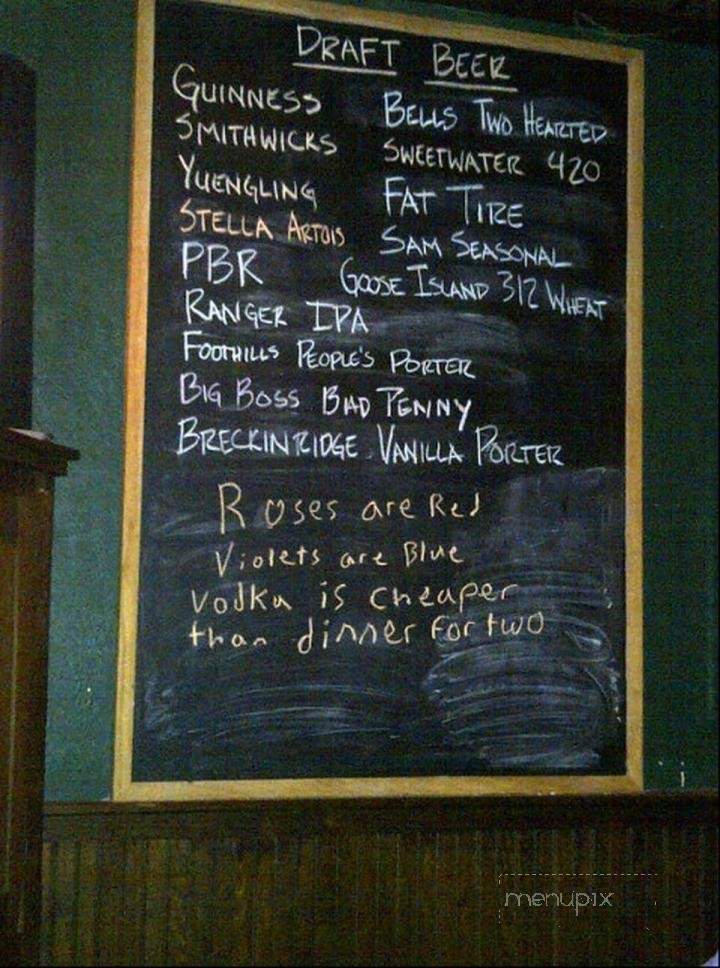 DRAFT BEER
GUINNESS
SMITHWICKS
YUENGLING
STELLA ARTOIS
PBR
RANGER IPA
FOOTHILLS PEOPLE'S PORTER
BIG BOSS BAD PENNY
BRECKINRIDGE VANILLA PORTER
BELLS TWO HEARTED
SWEETWATER 420
FAT TIRE
SAM SEASONAL
GOOSE ISLAND 312 WHEAT
Roses are Red
Violets are Blue
Vodka is cheaper
than dinner for two
menupix